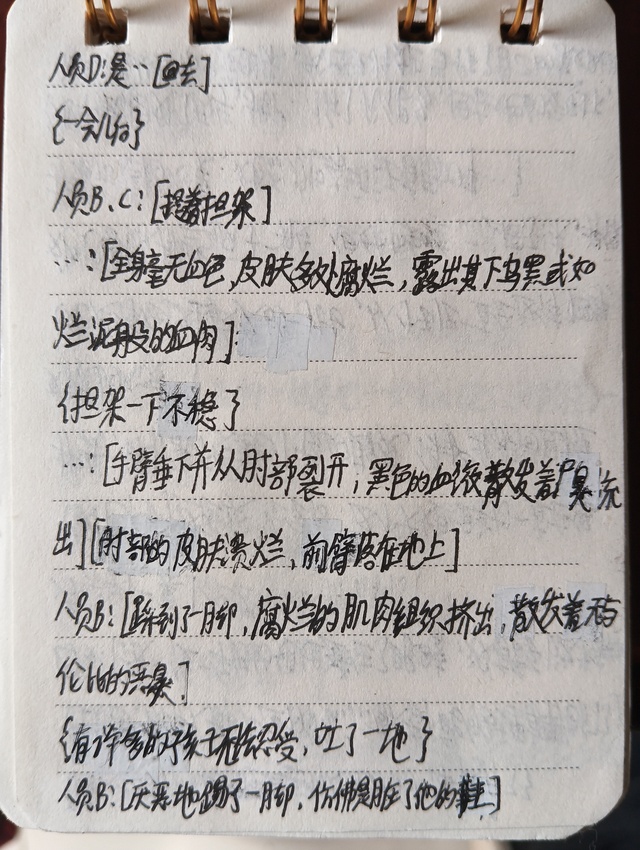 人员D:是…[回去]
{一会儿后}
人员B、C:[提着担架]
…:[全身毫无血色,皮肤多处腐烂,露出其下乌黑或如
烂泥般的血肉]
{担架一下不稳}
…:[手臂垂下并从肘部裂开,黑色的血液散发着尸臭流
出][肘部的皮肤溃烂,前臂落在地上]
人员B:[踩到了一脚,腐烂的肌肉组织挤出,散发着无与
伦比的恶臭]
{有许多的孩子无法忍受,吐了一地}
人员B:[厌恶地踢了一脚,仿佛是脏了他的鞋]